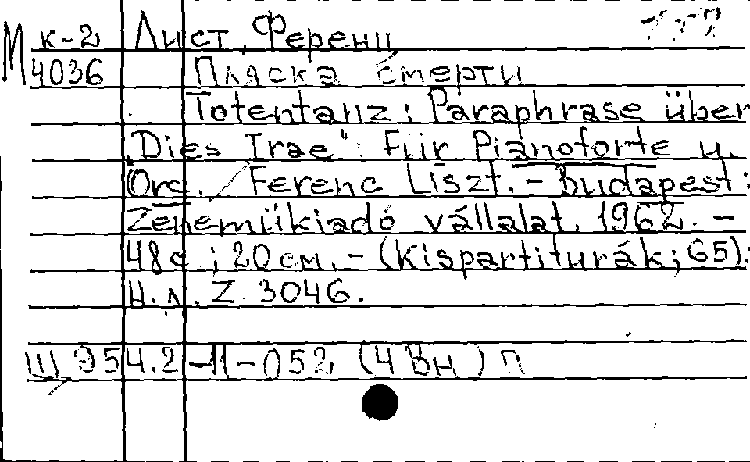 М к-2 Лист, Ференц
4036 Пляска смерти
Totentanz : Paraphrase über
"Dies Irae" : Für Pianoforte u.
Orc. / Ferenc Liszt. – Budapest :
Zeneműkiadó vállalat, 1962. –
48 с ; 20 см. – (Kispartiturák ; 65).
Н. д. Z. 3046.
Ш 954.2 -11-052 (4 Вн) П